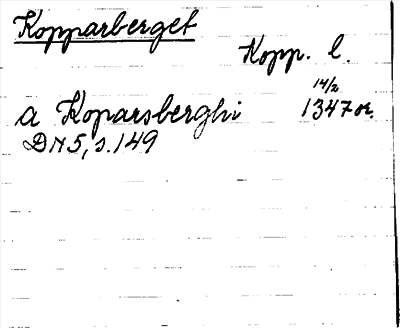 Kopparberget
Kopp. l.
14/2
a Koparsberghi 1347 or.
DN 5, s. 149